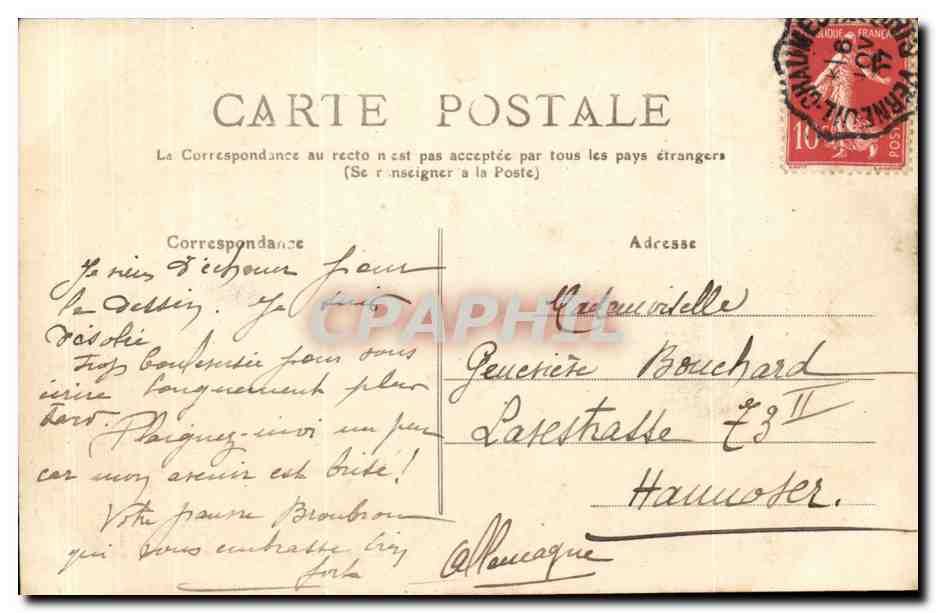 CARTE POSTALE
La Correspondance au recto n'est pas acceptée par tous les pays étrangers
(Se renseigner à la Poste)
Correspondance
Je viens d'échouer pour
le dessin. Je suis
désolée
Trop bouleversée pour vous
écrire longuement plus
tard.
Plaignez-moi un peu
car mon avenir est brisé!
Votre pauvre
qui vous embrasse bien
fort
Adresse
Mademoiselle
Geneviève Bouchard
73 II
Hannover.
Allemagne
CPAPHIL
VERNEUIL
10
POSTES